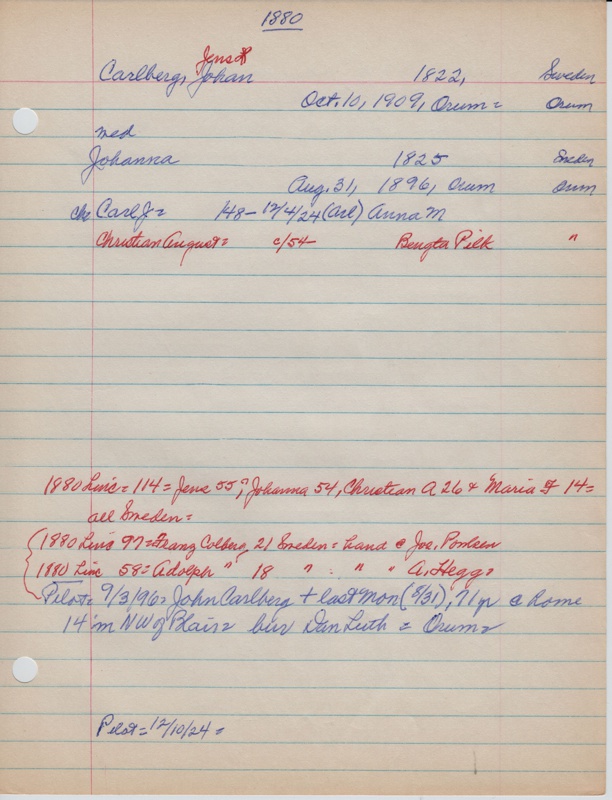 1880
Jens P
Carlberg, Johan 1822, Sweden
Oct. 10, 1909, Orum = Orum
med
Johanna 1825 Sweden
Aug. 31, 1896, Orum Orum
ch: Carl J = 148 - 12/4/24 (Arl) Anna M
Christian August = c/54 - Bengta Pilk "
1880 Linc = 114 = Jens 55, Johanna 54, Christian A 26 + Maria F 14 =
all Sweden =
1880 Linc 97 = Franz Colberg, 21 Sweden = hand @ Joe. Poulsen
1880 Linc 58 = Adolph " 18 " = " " A. Hegg =
Pilot = 9/3/96 = John Carlberg + last Mon (8/31), 71 yr @ Rome
14 m NW of Blair = bur Dan Luth = Orum =
Pilot = 12/10/24 =